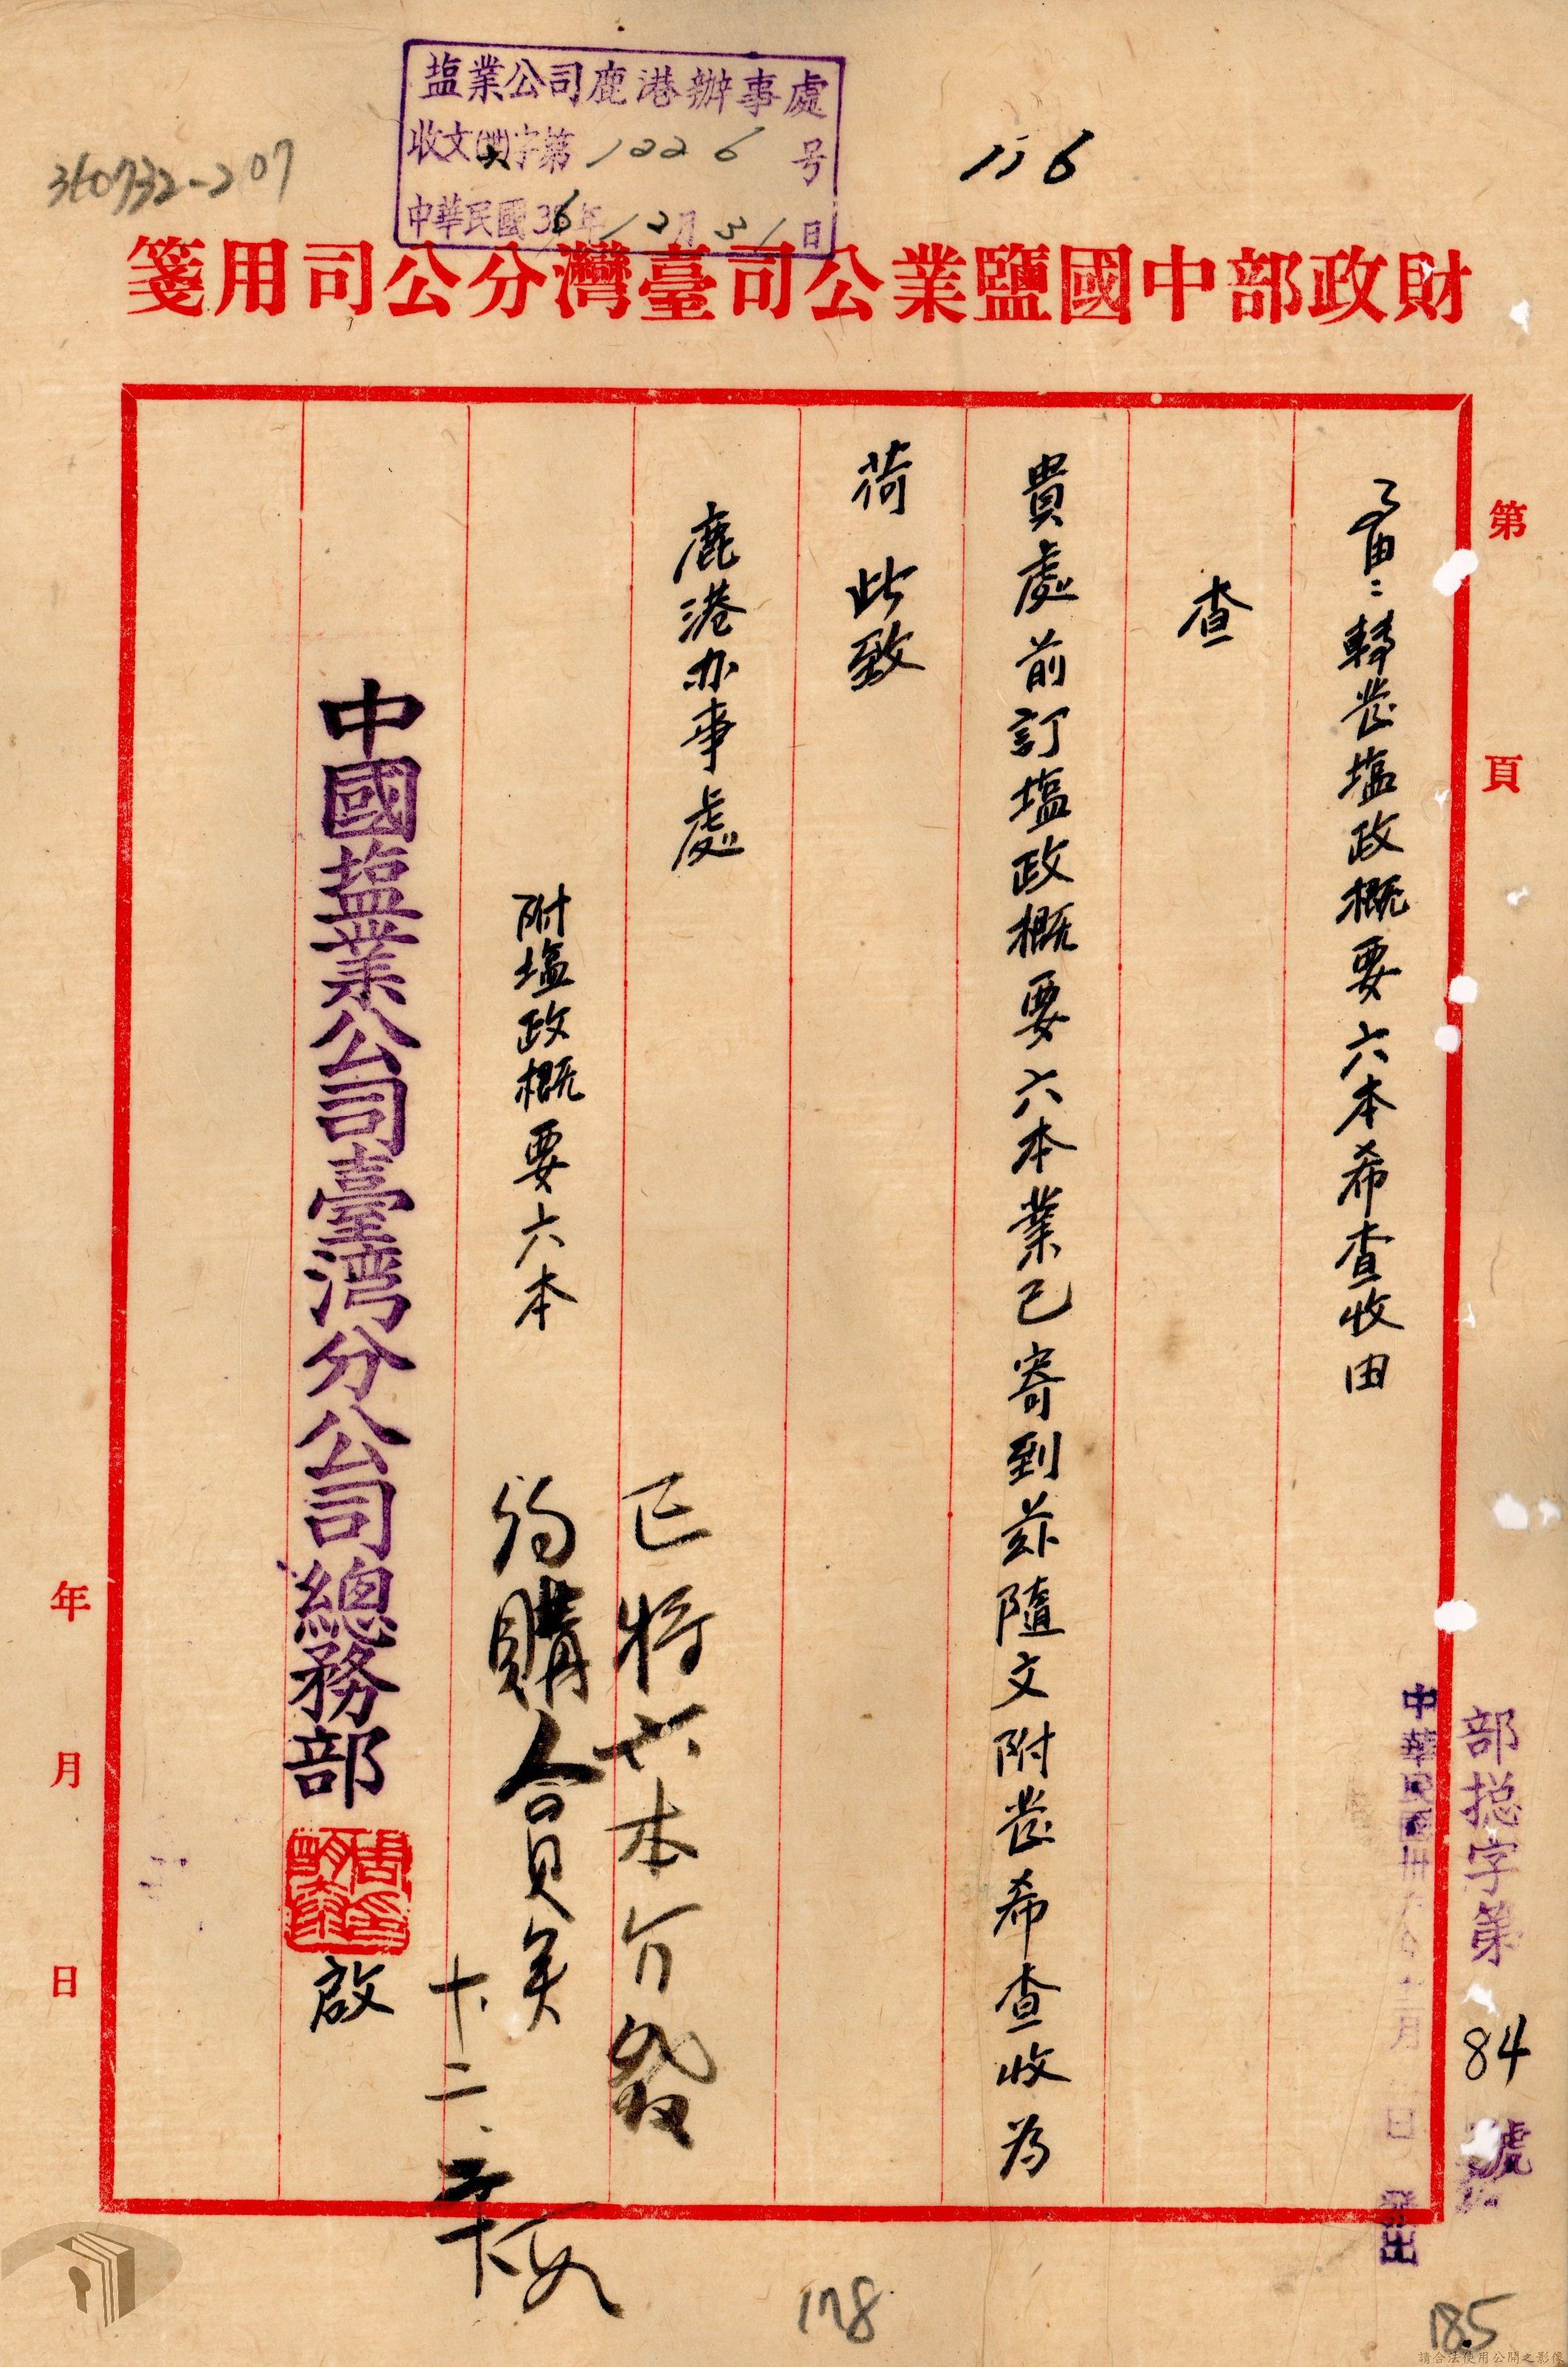 塩業公司鹿港辦事處
收文 字第1226号
中華民國36年12月31日
360732-207
116
財政部中國鹽業公司臺灣分公司用箋
第 頁
部総字第84號
中華民國卅六年十二月 日 發出
事由：轉发塩政概要六本希查收由
查
貴處前訂塩政概要六本業已寄到茲隨文附发希查收為
荷 此致
鹿港办事處
附塩政概要六本
已將六本分發
約購合員矣
十二、
中國塩業公司臺湾分公司總務部
啟
年 月 日
178
185
請合法使用公開之影像